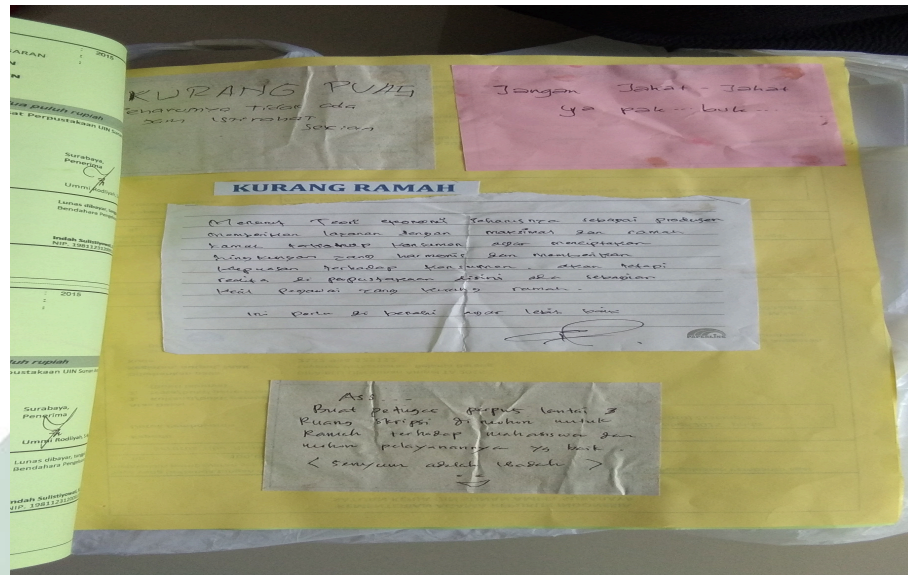 ARAN : 2015
puluh rupiah
at Perpustakaan UIN Sunan
Surabaya,
Penerima
Ummi Rodliyah,
Lunas dibayar,
Bendahara Pengeluaran
Indah Sulistiyowati
NIP. 198112312
: 2015
:
uh rupiah
ustakaan UIN Sunan
Surabaya,
Penerima
Ummi Rodliyah,
Lunas dibayar,
Bendahara Pengeluaran
ndah Sulistiyowati
NIP. 198112312
KURANG PUAS
Seharusnya tidak ada
Jam istirahat
Sekian
Jangan Jahat - Jahat
ya pak... buk...
KURANG RAMAH
Menurut Teori ekonomi seharusnya sebagai produsen
memberikan layanan dengan maksimal dan ramah
ramah terhadap konsumen agar menciptakan
lingkungan yang harmonis dan memberikan
kepuasan terhadap konsumen. akan tetapi
realita di perpustakaan disini ada sebagian
kecil pegawai yang kurang ramah.
Ini perlu di benahi agar lebih baik
PAPERLINE
Ass...
Buat petugas perpus lantai 3
Ruang skripsi di mohon untuk
Ramah terhadap mahasiswa dan
mohon pelayanannya yg baik.
< Senyum adalah ibadah >